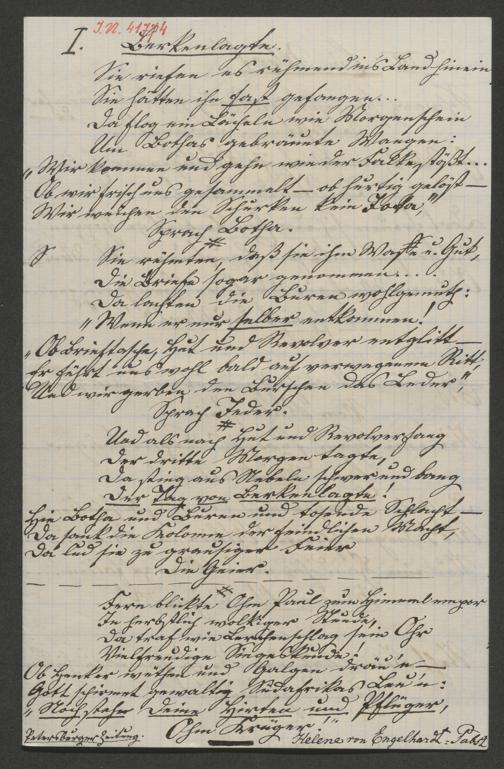 I. J.N. 41774
Berkenlagte.
Sie riefen es rühmend in's Land hinein
Sie hätten ihn fast gefangen...
Da flog ein Lächeln wie Morgenschein
Um Bothas gebräunte Wangen:
„Wir kommen und gehn wie der Falke stößt...
Ob wir frisch uns gesammelt – ob hurtig gelöst –
Wir weichen den Schurken kein Jota,"
Sprach Botha.
*
Sie rühmten, daß sie ihm Waffe u. Gut,
Die Briefe sogar genommen....
Da lachten die Buren wohlgemuth:
„Wenn er nur selber entkommen!
„Ob Brieftasche, Hut und Revolver entglitt –
Er führt uns wohl bald auf verwegenem Ritt,
Und wir gerben den Burschen das Leder",
Sprach Jeder.
*
Und als nach Hut und Revolverfang
Der dritte Morgen tagte,
Da stieg aus Nebeln schwer und bang
Der Tag von Berkenlagte:
Hie Botha und Buren und tosende Schlacht –
Da sank die Kolonne der feindlichen Macht,
Da lud sie zu grausiger Feier
Die Geier.
*
Fern blickte Ohm Paul zum Himmel empor
In herbstlich wolkiger Stunde,
Da traf wie Lerchenschlag sein Ohr
Vielfreudige Siegeskunde!
Ob Henker wethen und Galgen dräu'n –
Gott schirmet gewaltig Südafrikas Leu'n:
„Noch stehn Deine Hirten und Pflüger,
Ohm Krüger!"
Petersburger Zeitung.
Helene von Engelhardt-Pabst